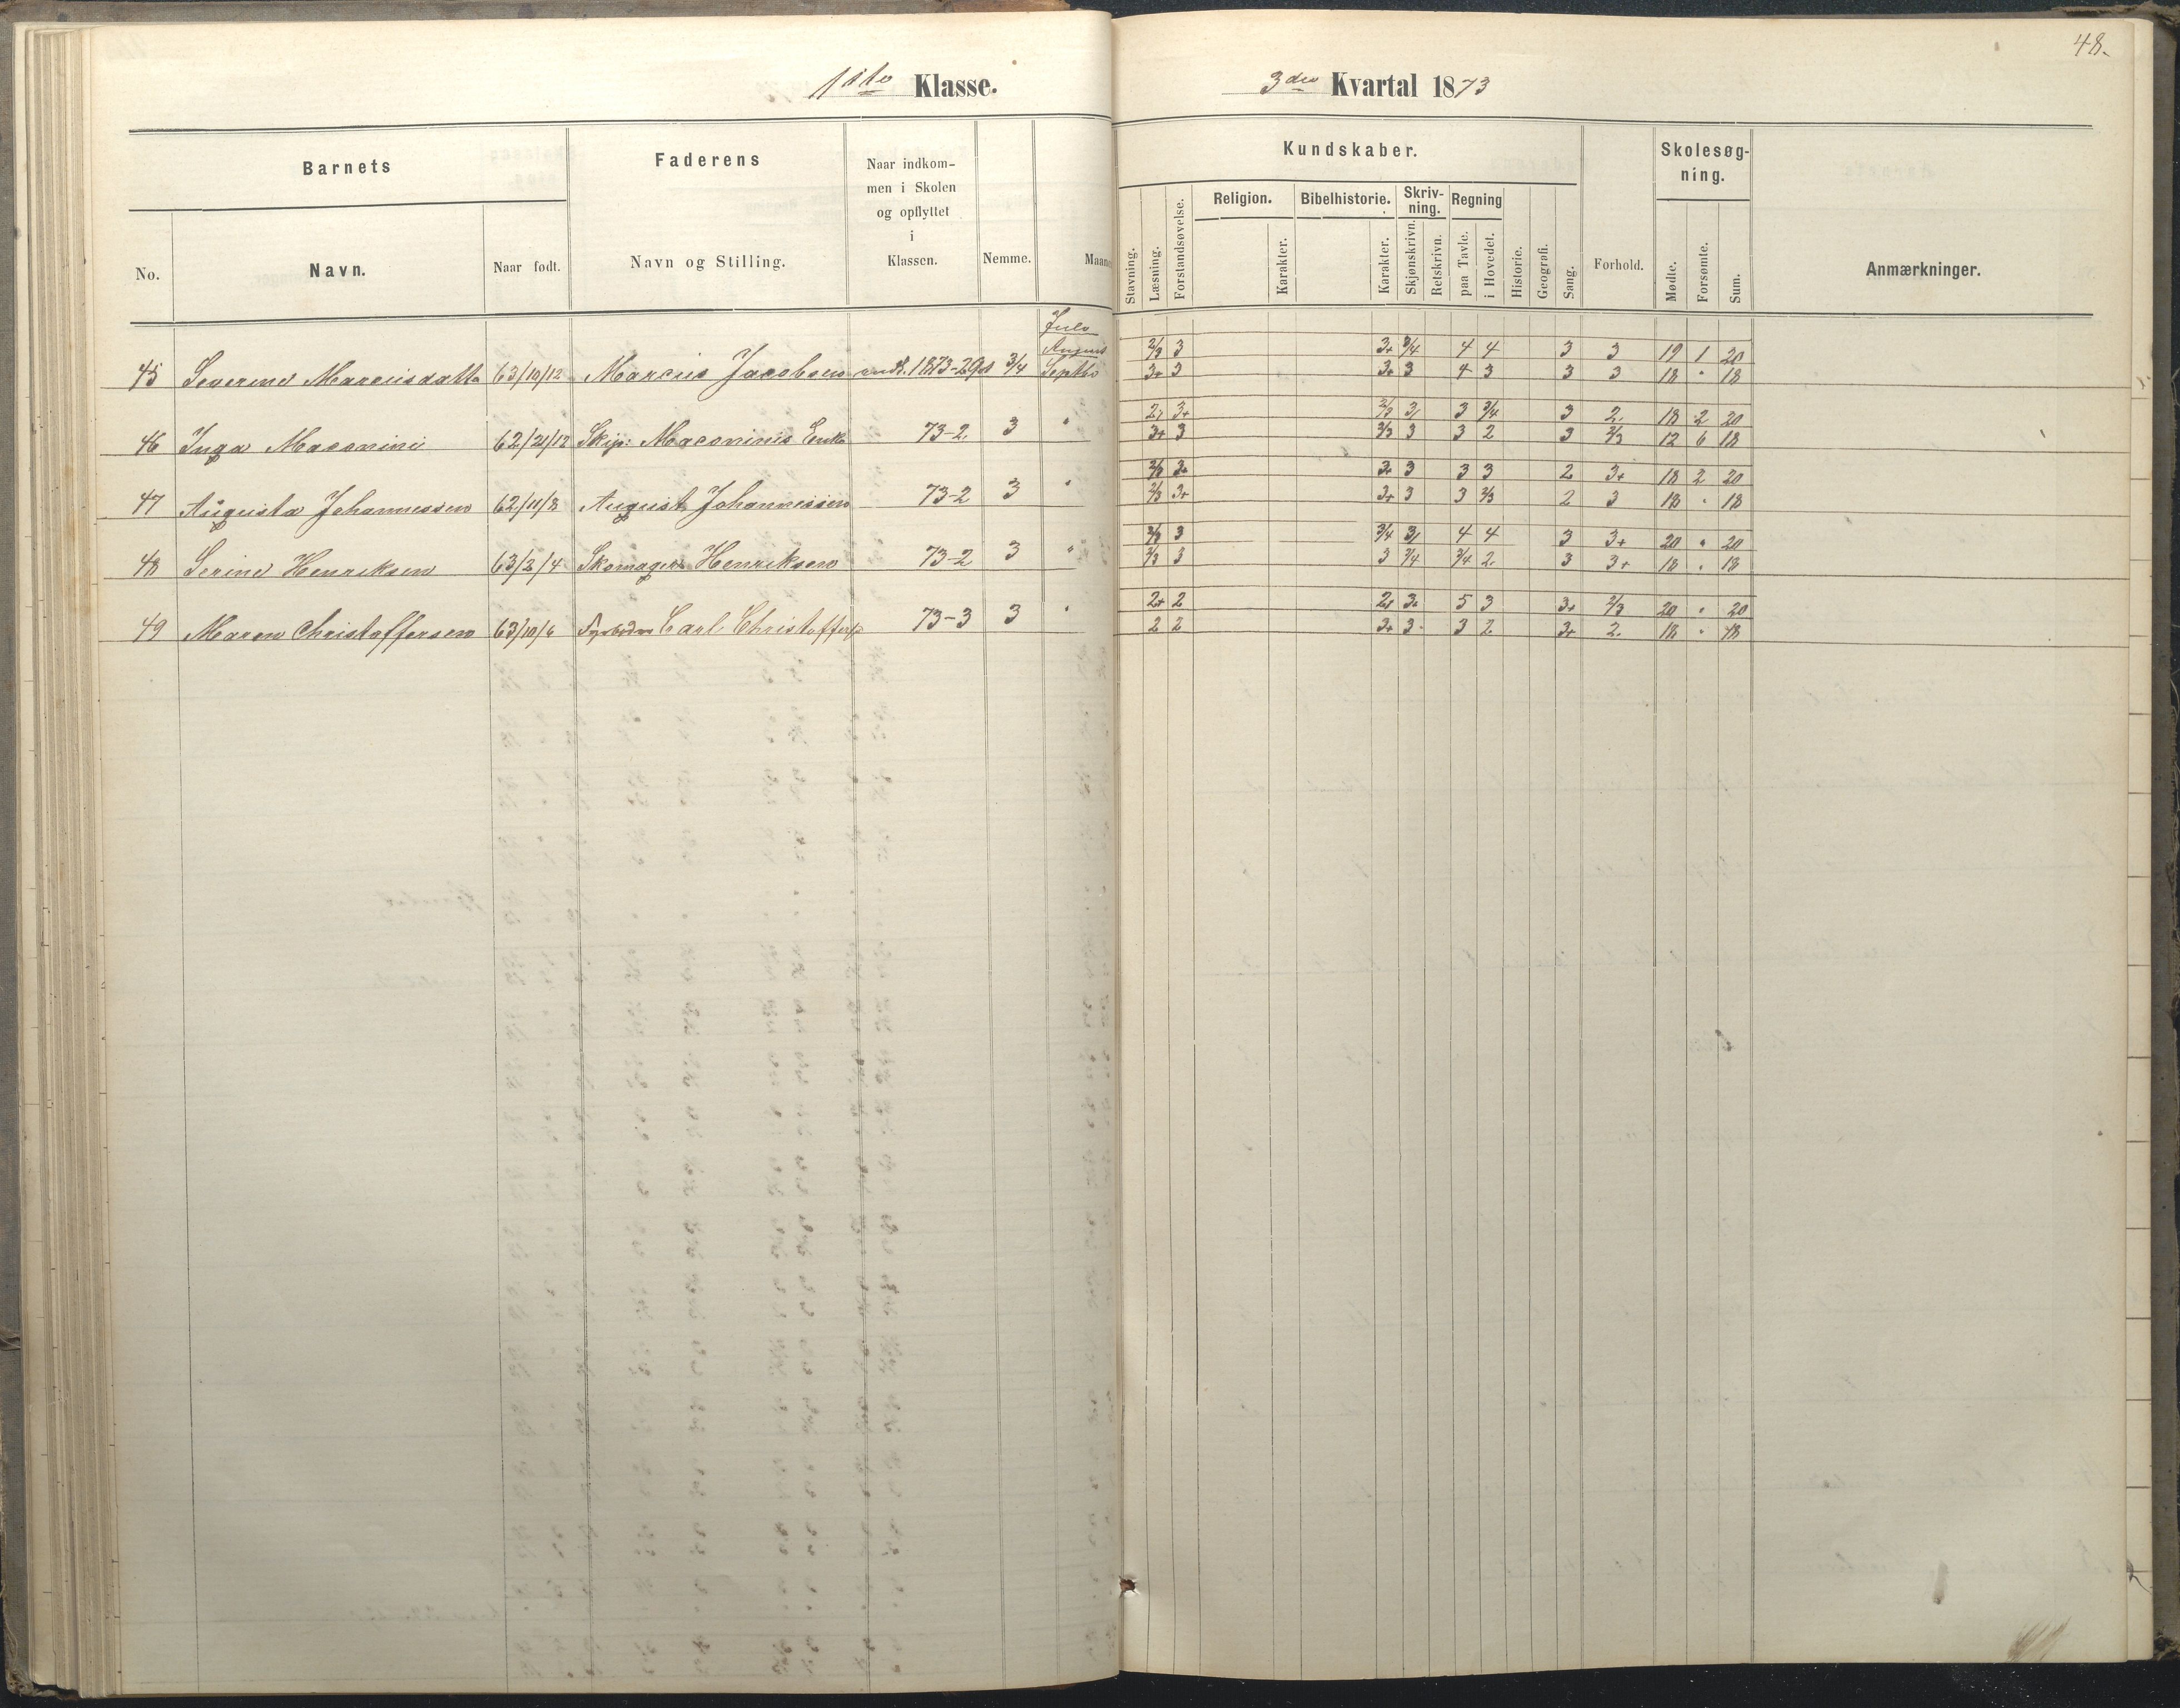 48.
1ste Klasse. 3die Kvartal 1873
Barnets Faderens Naar indkom- Kundskaber. Skolesøg-
men i Skolen ning.
og opflyttet Religion. Bibelhistorie. Skriv- Regning
i ning.
No. Navn. Naar født. Navn og Stilling. Klassen. Nemme. Maaned Stavning. Læsning. Forstandsøvelse. Karakter. Karakter. Skjønskrivn. Retskrivn. paa Tavle. i Hovedet. Historie. Geografi. Sang. Forhold. Mødte. Forsømte. Sum. Anmærkninger.
Juli
August 2/3 3 3+ 3/4 4 4 3 3 19 1 20
45 Severine Marcusdatter 63/10/12 Marcus Jacobsen 1873-2 3/4 Septbr 3+ 3 3+ 3 4 3 3 3 18 " 18
2/3 3+ 2/3 3 3 3/4 3 2 18 2 20
46 Inga 62/21/12 Skip. Enke 73-2. 3 " 3+ 3 2/3 3 3 2 3 2/3 12 6 18
2/3 3+ 3+ 3 3 3 2 3+ 18 2 20
47 Augusta Johannessen 62/11/8 August Johannessen 73-2 3 " 2/3 3+ 3+ 3 3 2/3 2 3 18 " 18
2/3 3 3/4 3 4 4 3 3+ 20 " 20
48 Serine Henriksen 63/2/4 Skomager Henriksen 73-2 3 " 2/3 3 3 3/4 3/4 2 3 3+ 18 " 18
2+ 2 2 3 5 3 3+ 2/3 20 " 20
49 Maren Christoffersen 63/10/6 Fyrbøder Carl Christoffers. 73-3 3 " 2 2 3+ 3 3 2 3+ 2. 18 " 18